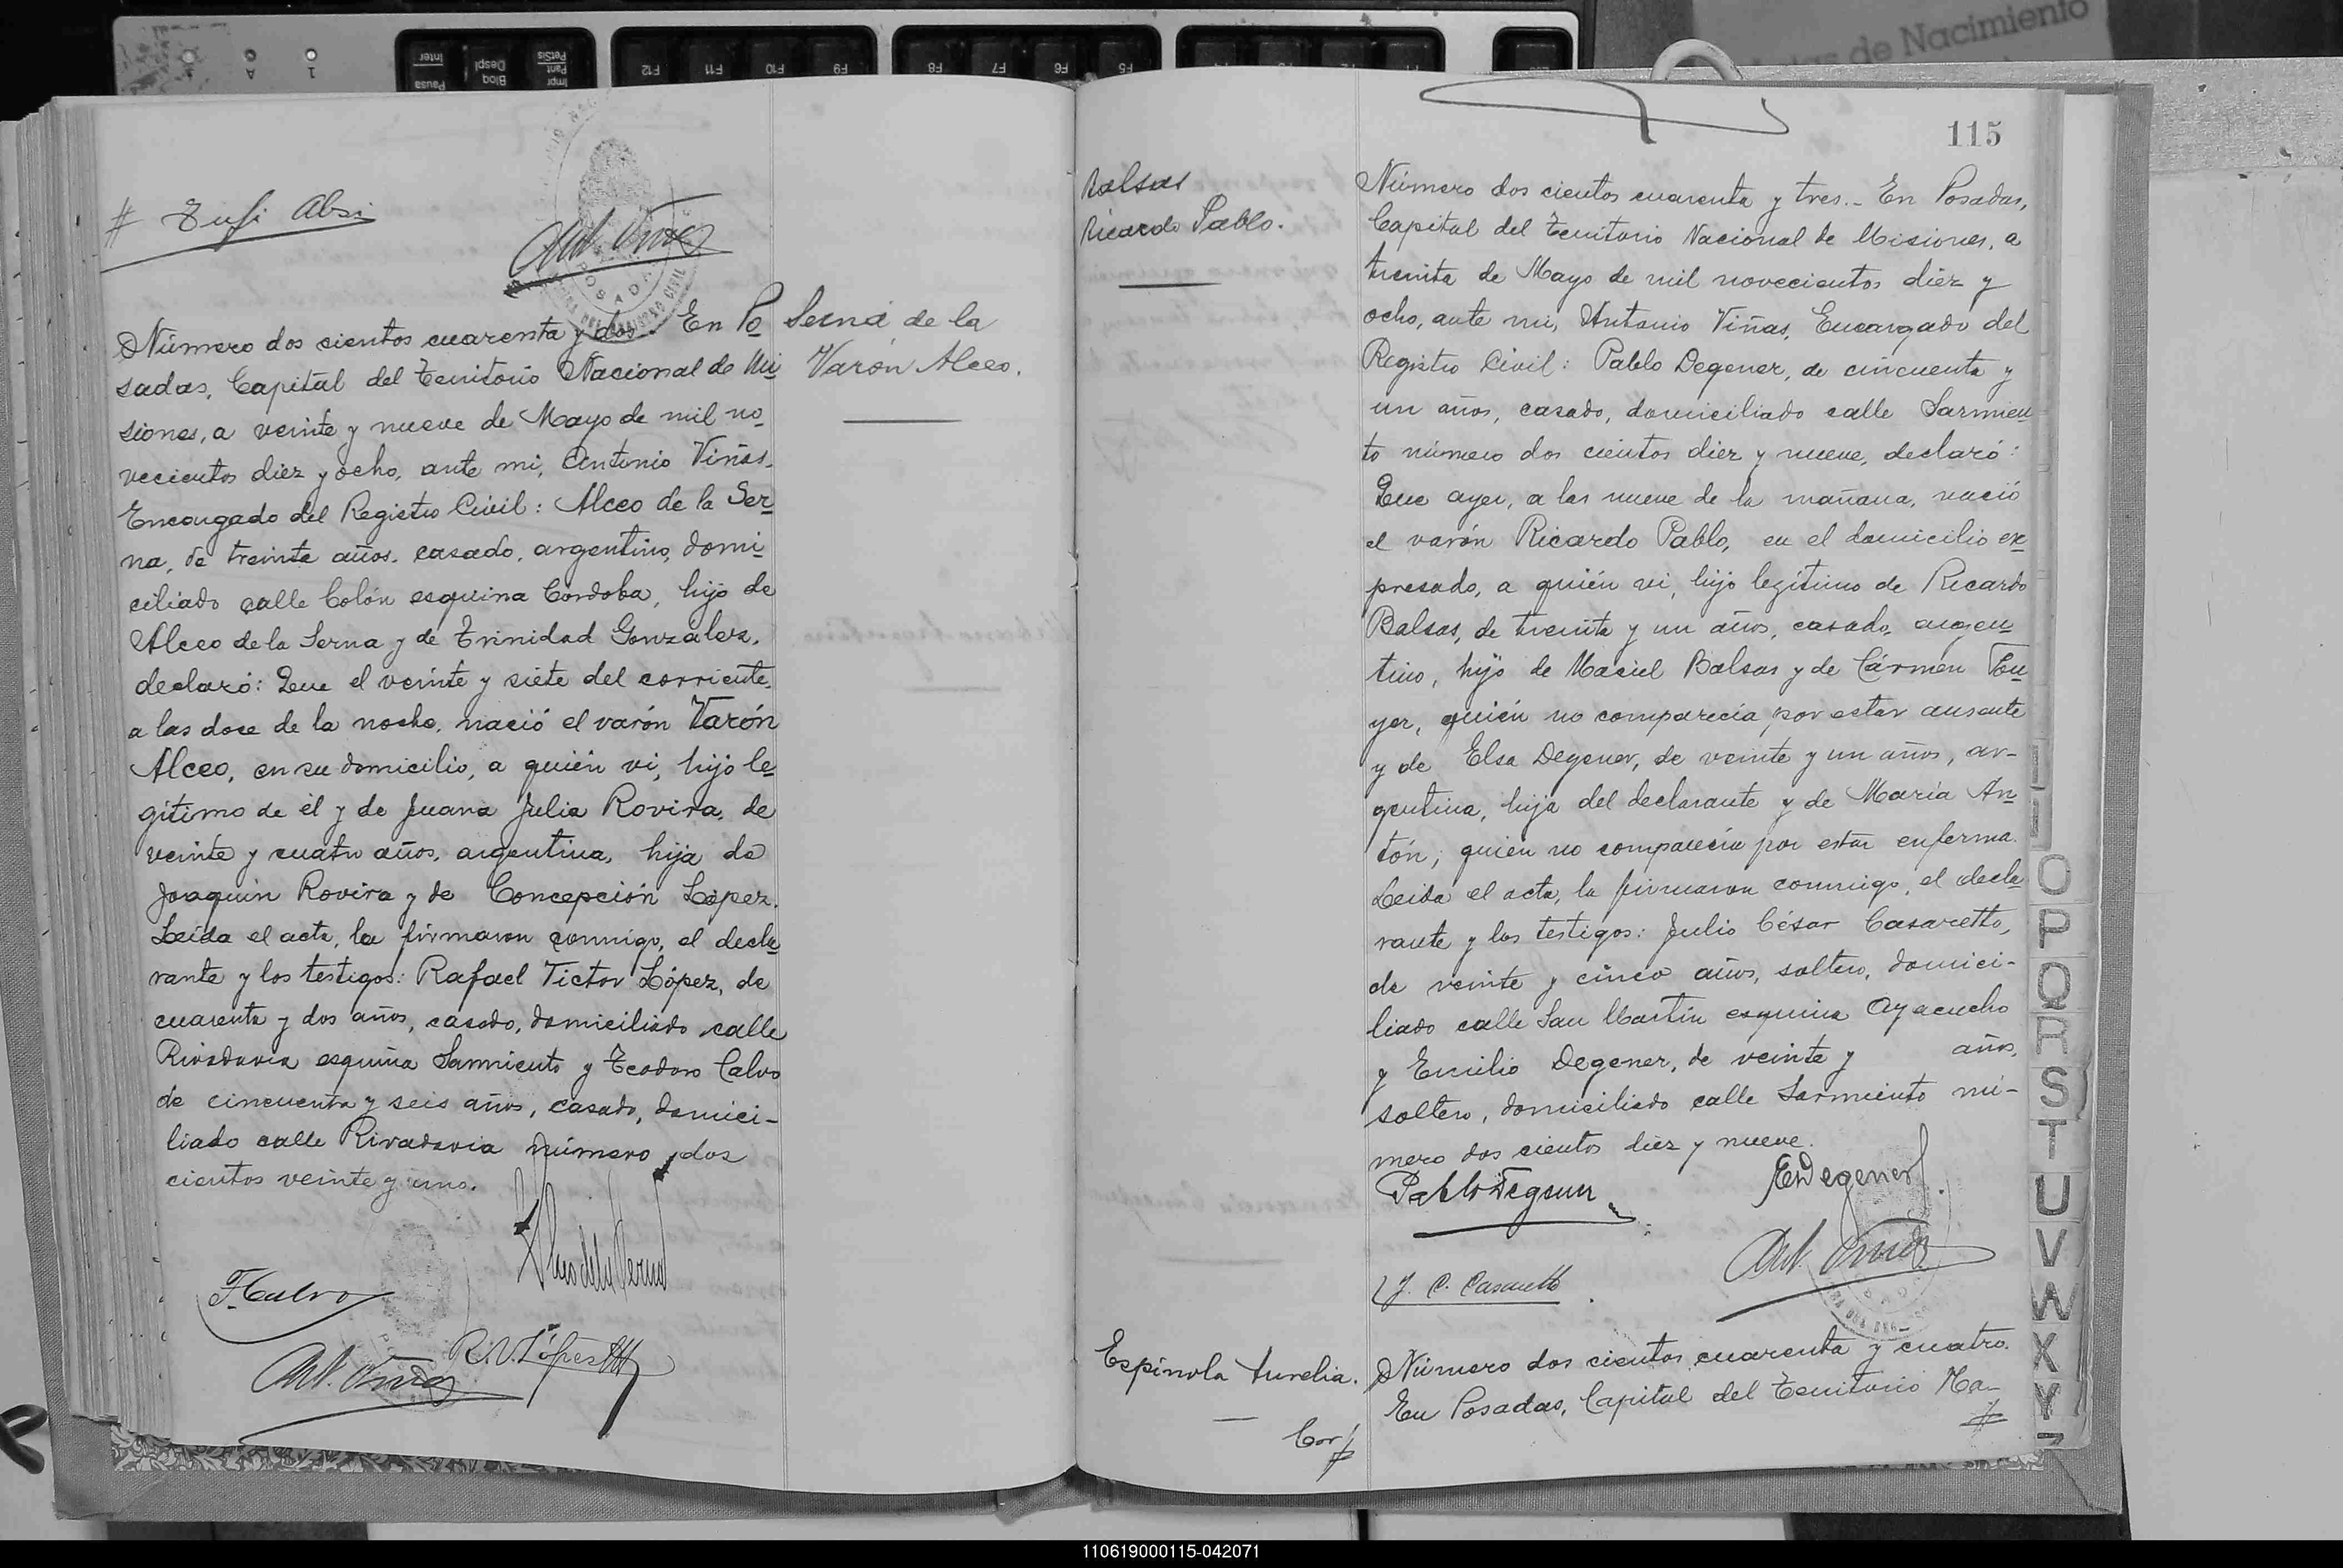 # Tufi Absi
Ant. Viñas
Número dos cientos cuarenta y dos. En Po
sadas, Capital del Territorio Nacional de Mi
siones, a veinte y nueve de Mayo de mil no
vecientos diez y ocho, ante mi, Antonio Viñas,
Encargado del Registro Civil: Alceo de la Ser
na, de treinta años, casado, argentino, domi
ciliado calle Colón esquina Córdoba, hijo de
Alceo de la Serna y de Trinidad Gonzalez,
declaró: Que el veinte y siete del corriente,
a las doce de la noche, nació el varón Varón
Alceo, en su domicilio, a quién vi, hijo le
gítimo de él y de Juana Julia Rovira, de
veinte y cuatro años, argentina, hija de
Joaquín Rovira y de Concepción López.
Leída el acta, la firmaron conmigo, el decla
rante y los testigos: Rafael Victor López, de
cuarenta y dos años, casado, domiciliado calle
Rivadavia esquina Sarmiento y Teodoro Calvo
de cincuenta y seis años, casado, domici-
liado calle Rivadavia número dos
cientos veinte y uno.
Alceo de la Serna
T. Calvo
R. V. López
Ant. Viñas
Serna de la
Varón Alceo.
115
Balsas
Ricardo Pablo.
Número dos cientos cuarenta y tres.- En Posadas,
Capital del Territorio Nacional de Misiones, a
treinta de Mayo de mil novecientos diez y
ocho, ante mi, Antonio Viñas, Encargado del
Registro Civil: Pablo Degener, de cincuenta y
un años, casado, domiciliado calle Sarmien
to número dos cientos diez y nueve, declaró:
Que ayer, a las nueve de la mañana, nació
el varón Ricardo Pablo, en el domicilio ex
presado, a quién vi, hijo legítimo de Ricardo
Balsas, de treinta y un años, casado, argen
tino, hijo de Maciel Balsas y de Cármen
yer, quién no comparecía por estar ausente
y de Elsa Degener, de veinte y un años, ar-
gentina, hija del declarante y de María An
tón, quien no comparecía por estar enferma.
Leída el acta, la firmaron conmigo, el decla
rante y los testigos: Julio César Casaretto,
de veinte y cinco años, soltero, domici-
liado calle San Martín esquina Ayacucho
y Emilio Degener, de veinte y años,
soltero, domiciliado calle Sarmiento nú-
mero dos cientos diez y nueve.
Pablo Degener
E Degener
J. C. Casaretto
Ant. Viñas
Espínola Aurelia.
Cor #
Número dos cientos cuarenta y cuatro.
En Posadas, Capital del Territorio Na-
#
O
P
Q
R
S
T
U
V
W
X
Y
Z
de Nacimiento
Impr Pant PetSis
Bloq Despl
Pausa Inter
F12 F11 F10 F9 F8 F7 F6 F5
110619000115-042071